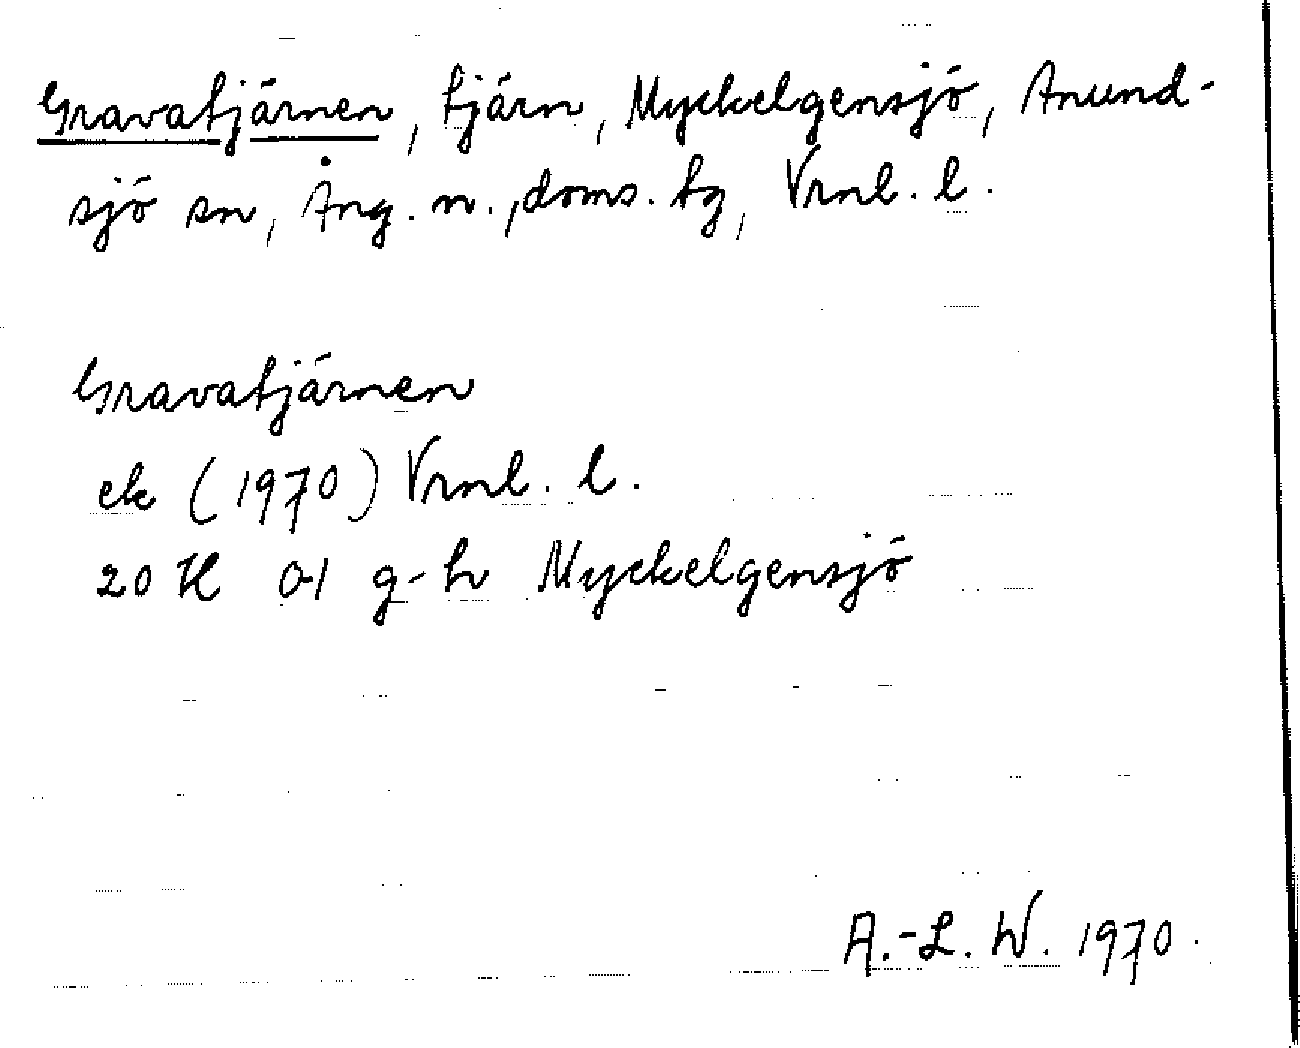 Gravatjärnen, tjärn, Myckelgensjö, Anund-
sjö sn, Ång. n., doms. tg, Vrnl. l.
Gravatjärnen
ek (1970) Vrnl. l.
20 H 0-1 g-h Myckelgensjö
A.-L. W. 1970.